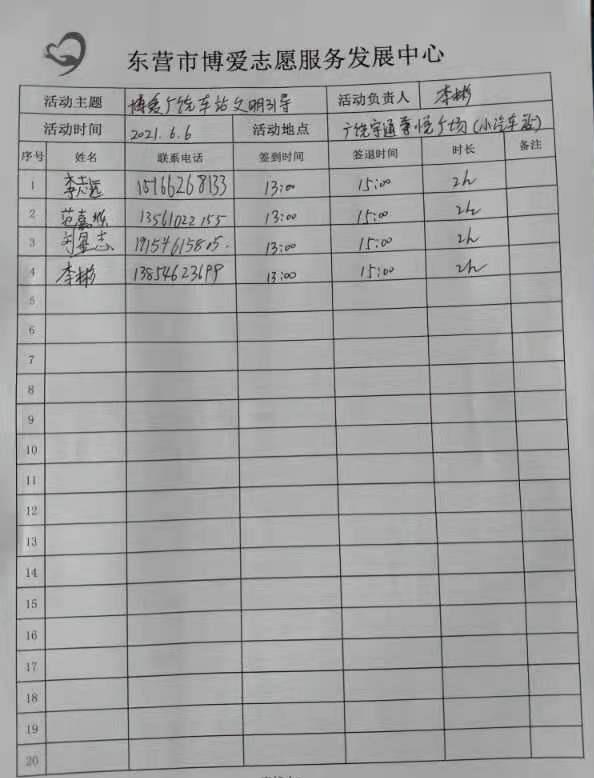 东营市博爱志愿服务发展中心
活动主题 博爱广饶车站文明引导 活动负责人 李彬
活动时间 2021.6.6 活动地点 广饶宇通 广场(小汽车站)
序号 姓名 联系电话 签到时间 签退时间 时长 备注
1 李志远 15166268133 13:00 15:00 2h
2 范嘉 13561022155 13:00 15:00 2h
3 志 19154615805. 13:00 15:00 2h
4 李彬 13854623699 13:00 15:00 2h
5
6
7
8
9
10
11
12
13
14
15
16
17
18
19
20